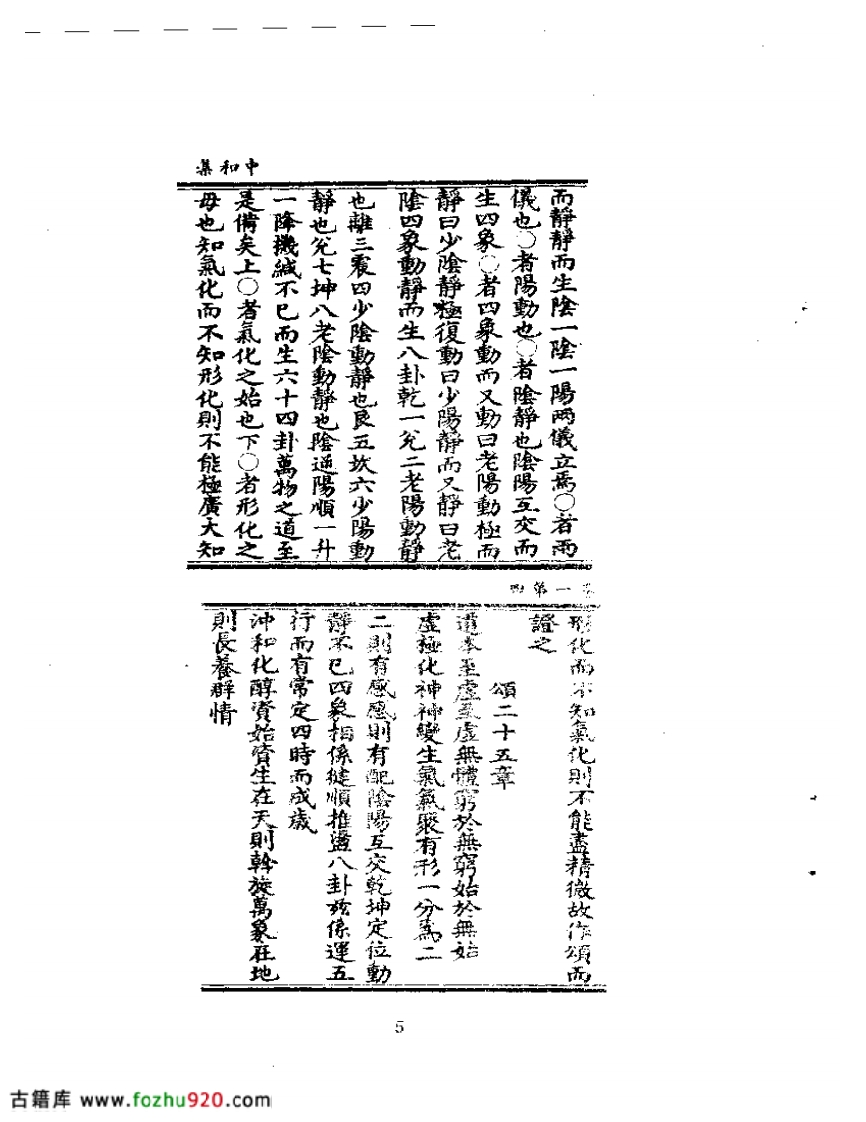 中和集
而靜靜而生陰一陰一陽兩儀立焉〇者兩
儀也〇者陽動也〇者陰靜也陰陽互交而
生四象〇者四象動而又動曰老陽動極而
靜曰少陰靜極復動曰少陽靜而又靜曰老
陰四象動靜而生八卦乾一兌二老陽動靜
也離三震四少陰動靜也艮五坎六少陽動
靜也兌七坤八老陰動靜也陰逆陽順一升
一降機緘不已而生六十四卦萬物之道至
是備矣上〇者氣化之始也下〇者形化之
母也知氣化而不知形化則不能極廣大知
一第四
形化而不知氣化則不能盡精微故作頌而
證之
頌二十五章
道本至虛至虛無體窮於無窮始於無始
虛極化神神變生氣氣聚有形一分為二
二則有感感則有配陰陽互交乾坤定位動
靜不已四象相係健順推盪八卦茲係運五
行而有常定四時而成歲
沖和化醇資始資生在天則斡旋萬象在地
則長養群情
5
古籍库 www.fozhu920.com